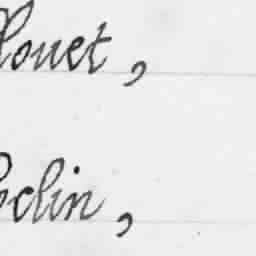 louet,
clin,